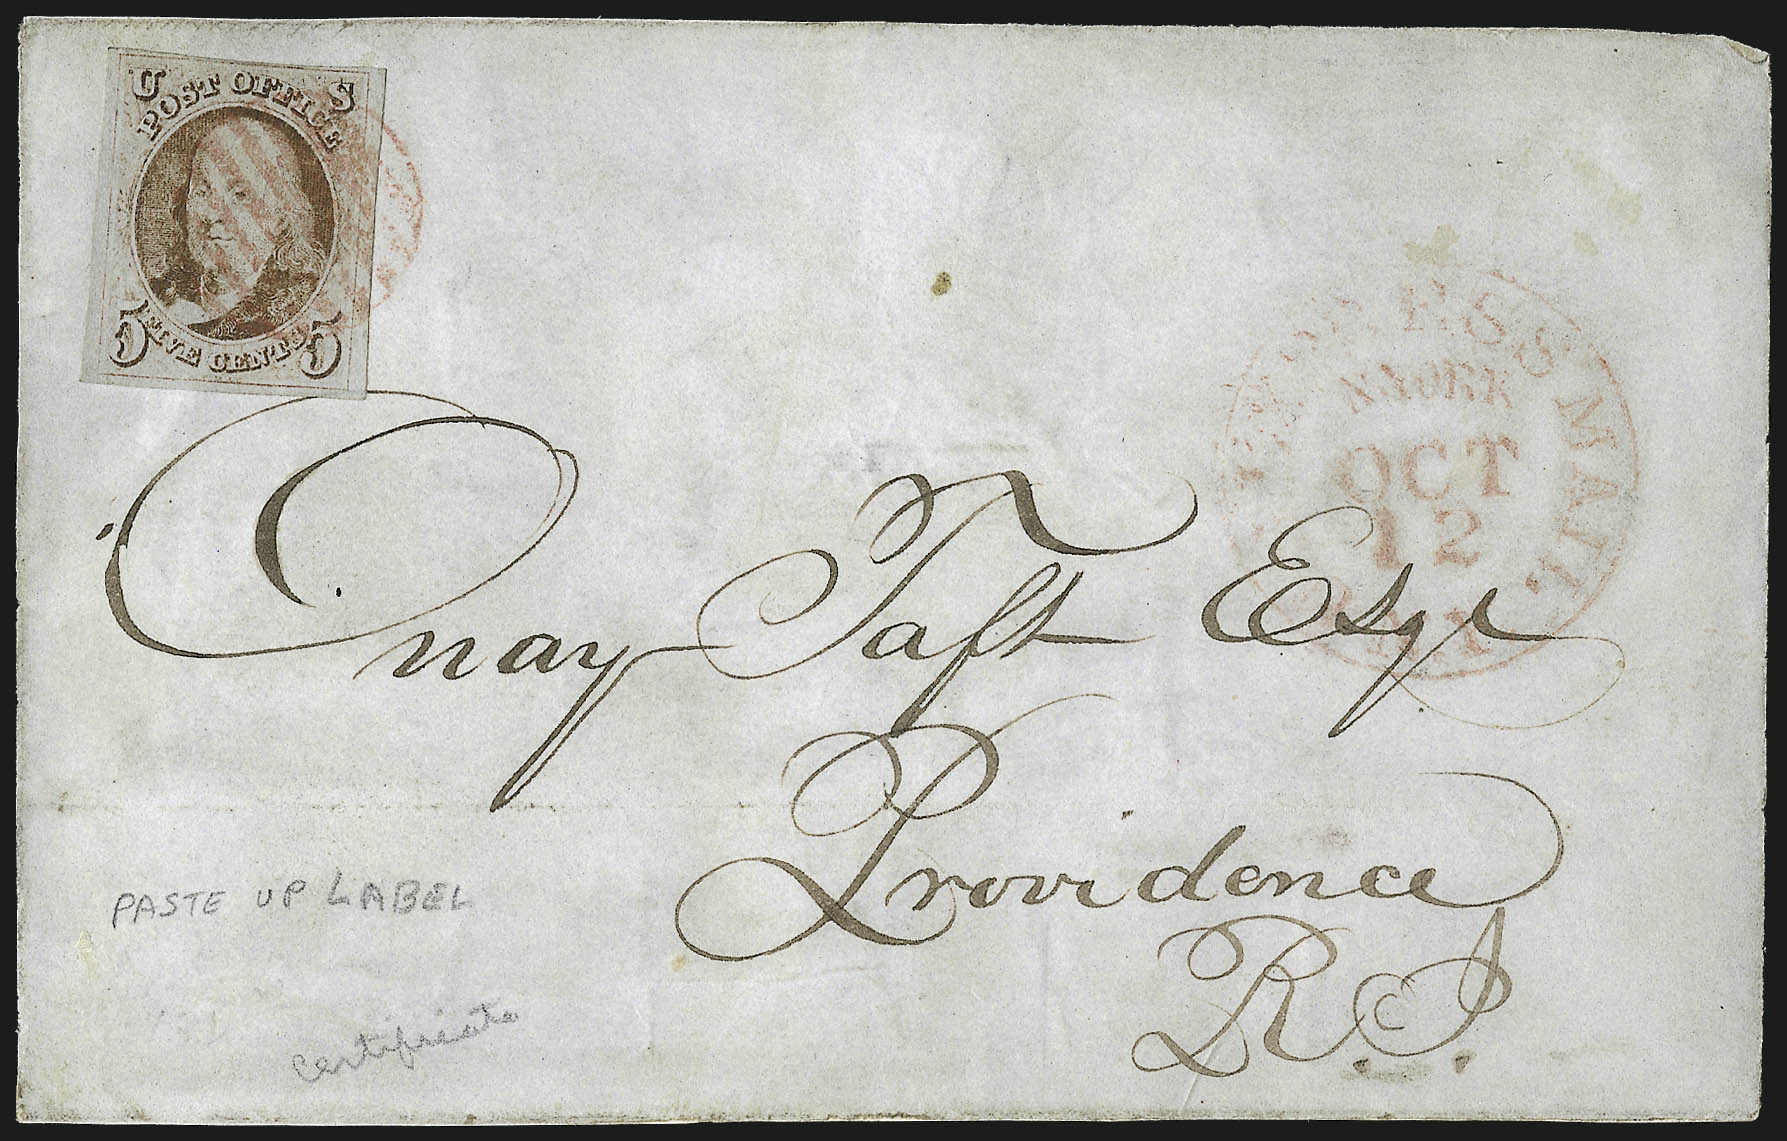 U S
POST OFFICE
5 FIVE CENTS 5
EXPRESS MAIL.
N.YORK
OCT
12
N.Y.
Onay Taft Esqr
Providence
R.I.
PASTE UP LABEL
certificate